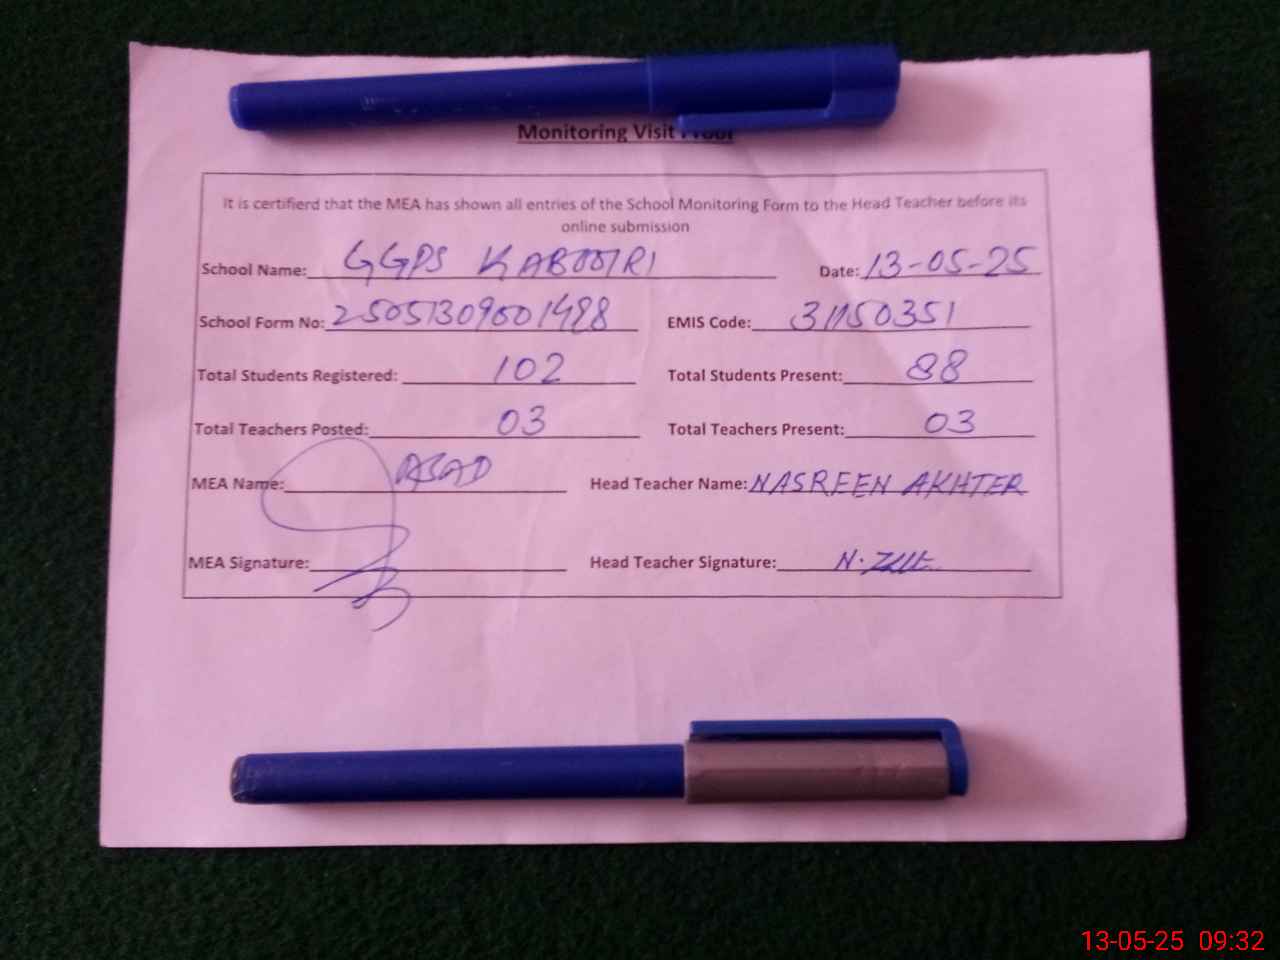 Monitoring Visit Proof
It is certifierd that the MEA has shown all entries of the School Monitoring Form to the Head Teacher before its
online submission
School Name: GGPS KABOOTRI Date: 13-05-25
School Form No: 25051309001498 EMIS Code: 31150351
Total Students Registered: 102 Total Students Present: 88
Total Teachers Posted: 03 Total Teachers Present: 03
MEA Name: ASAD Head Teacher Name: NASREEN AKHTER
MEA Signature: Head Teacher Signature: N.
13-05-25 09:32